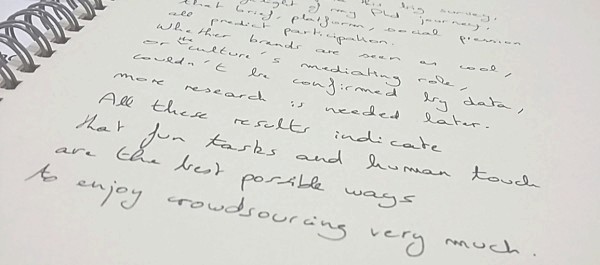 this big survey,
of my PhD journey,
that brief, platform, social pression
all predict participation.
Whether brands are seen as cool,
or the culture's mediating role,
couldn't be confirmed by data,
more research is needed later.
All these results indicate
that fun tasks and human touch
are the best possible ways
to enjoy crowdsourcing very much.